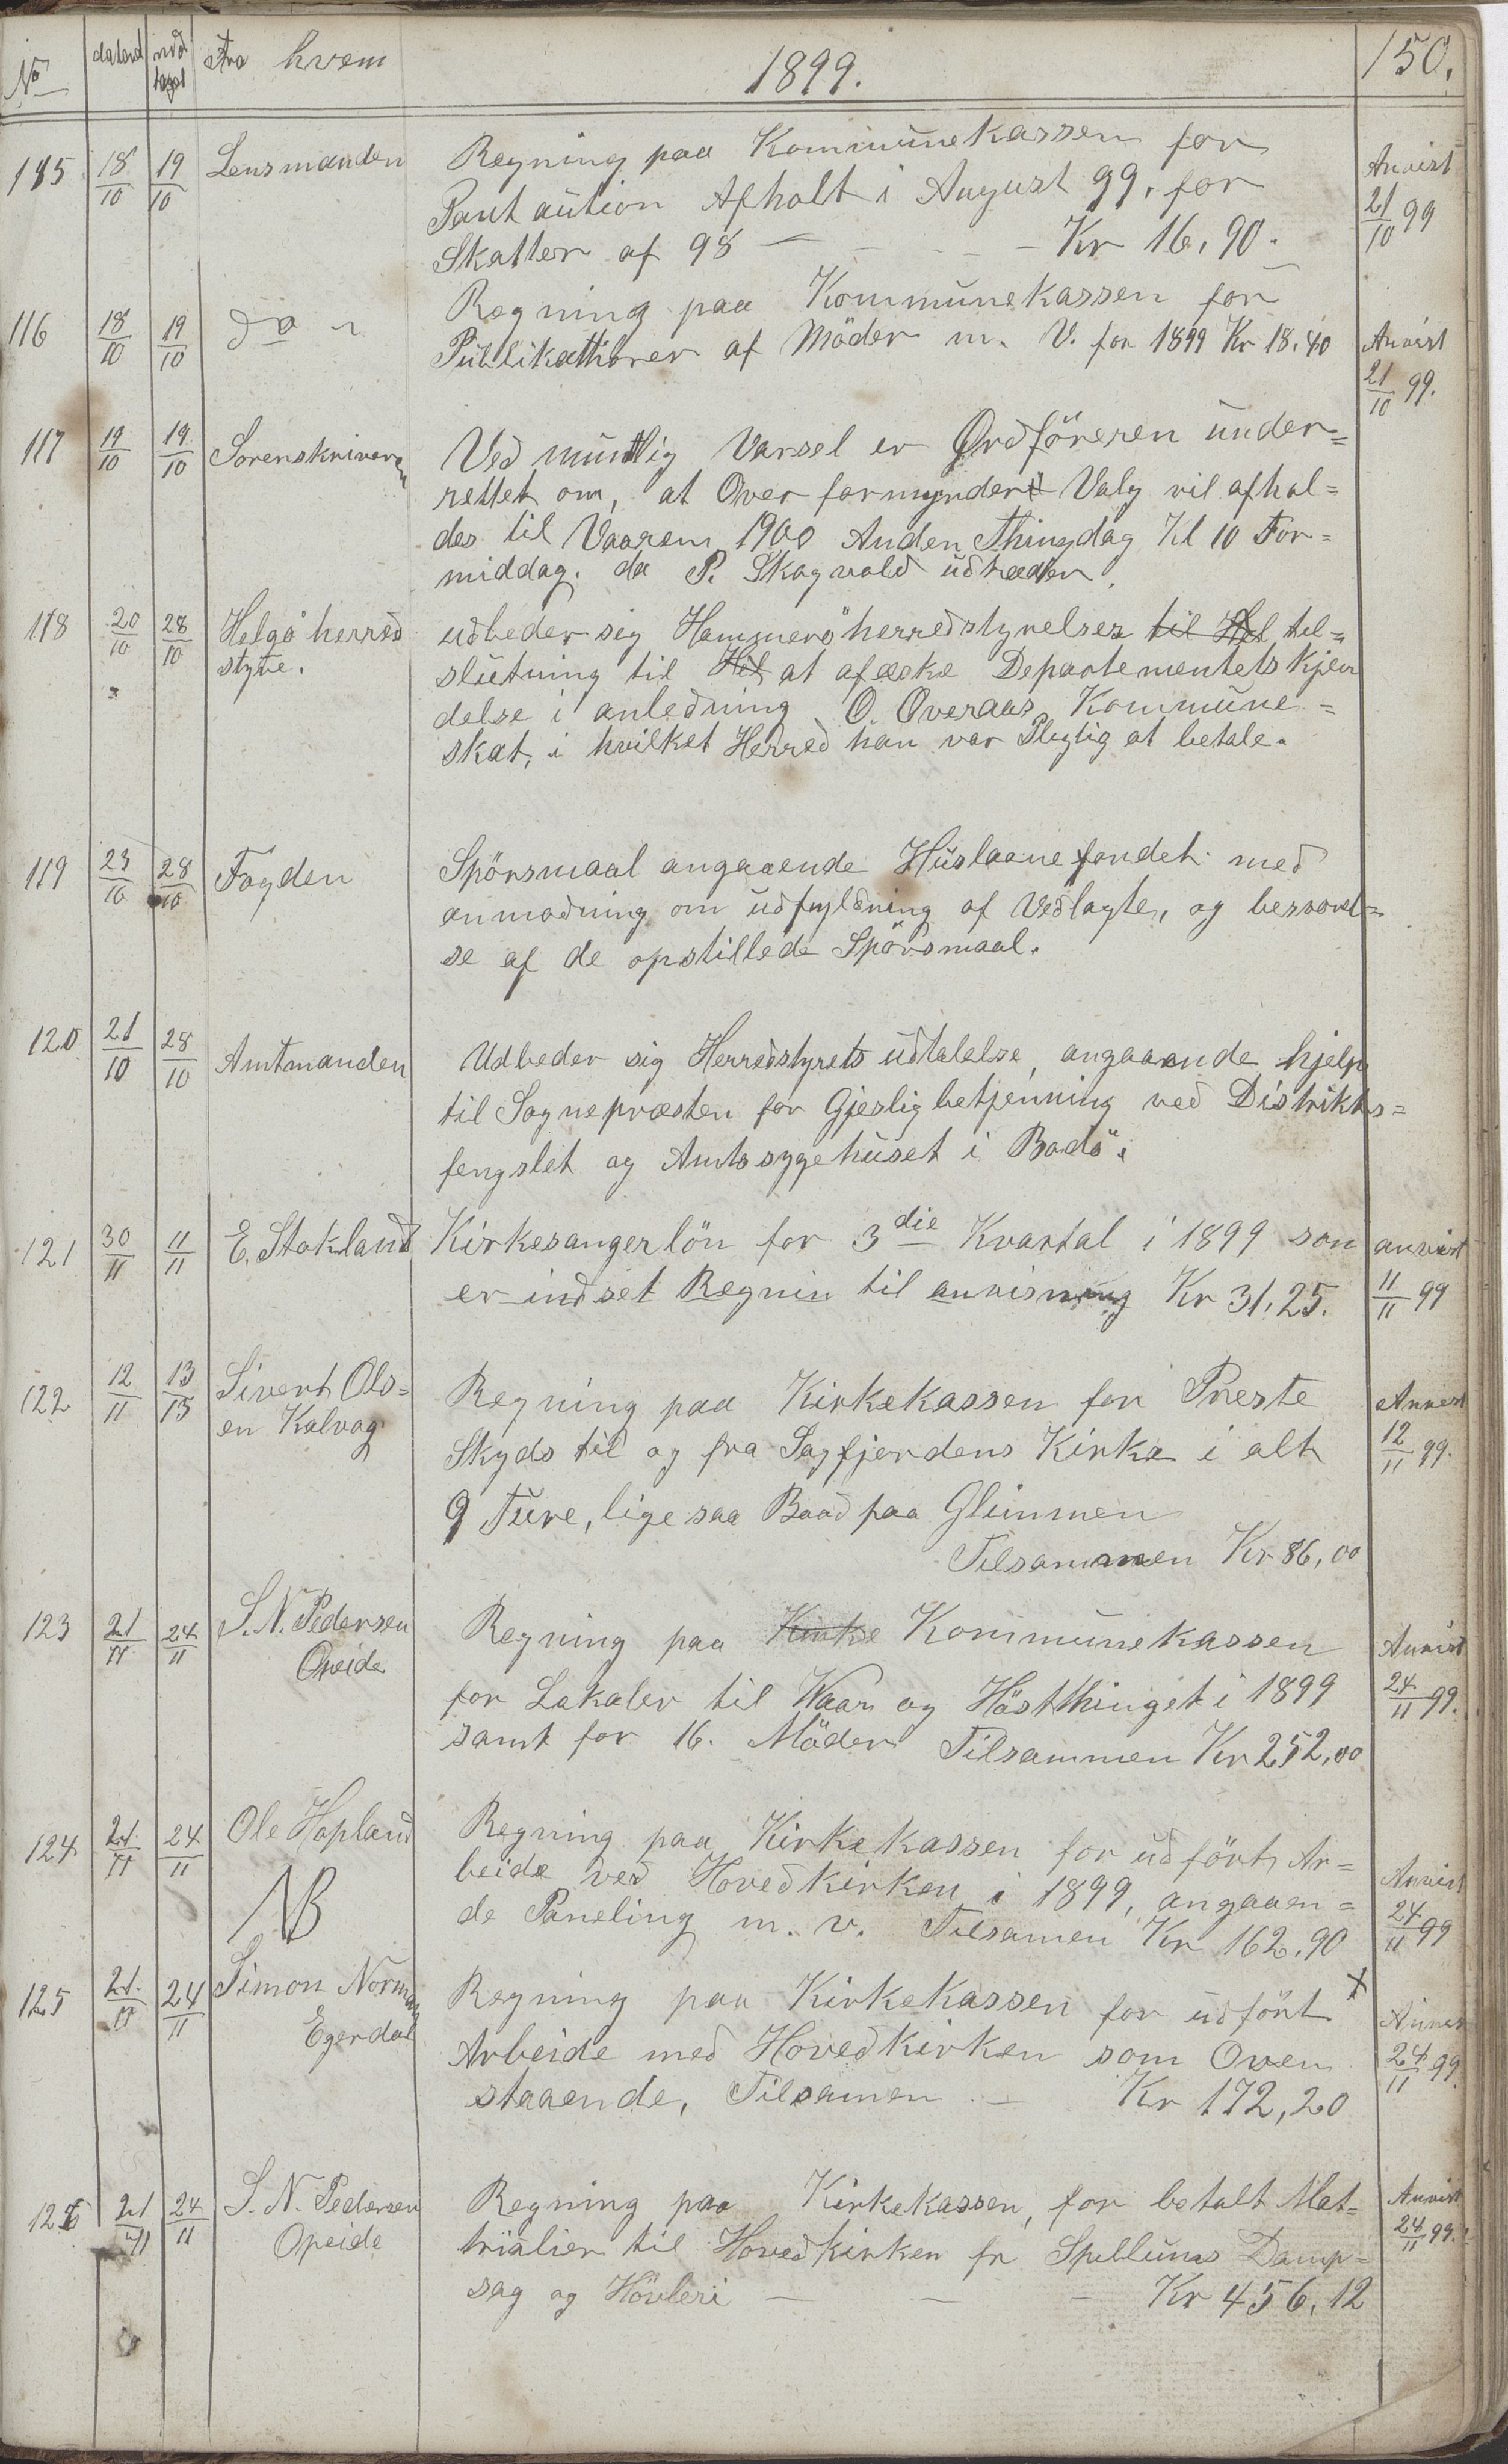 No dateret mod taget Fra hvem 1899. 150.
185 18/10 19/10 Lensmanden Regning paa Kommunekassen for Anvist
Pantaution Afholt i August 99, for 21/10 99
Skatter af 98 — - - - Kr 16,90.
116 18/10 19/10 do Regning paa Kommunekassen for
Publikattioner af Möder m. V. for 1899 Kr 18,40 Anvist
21/10 99.
117 19/10 19/10 Sorenskriveren Ved muntlig Varsel er Ordföreren under=
rettet om, at Overformynder Valg vil afhol=
des til Vaaren 1900 Anden Thingdag Kl 10 For=
middag. da P. Skagvold udtræder.
118 20/10 28/10 Helgö herred udbeder sig Hammeröherredstyrelses til Hel til=
styre. slutning til Hel at afæske Departementets Kjen
delse i anledning O. Overaas Kommune=
skat, i hvilket Herred han var Pligtig at betale.
119 23/10 28/10 Fogden Spörsmaal angaaende Huslaanefondet med
anmodning om udfyldning af Vedlagte, og besvarel=
se af de opstillede Spörsmaal.
120 21/10 28/10 Amtmanden Udbeder sig Herredstyrets udtalelse, angaaende hjelp
til Sognepræsten for Gjeslig betjenning ved Distrikts=
fengslet og Amtssygehuset i Bodö.
121 30/11 11/11 E. Stokland Kirkesangerlön for 3die Kvartal i 1899 som anvist
er indset Regnin til anvisning Kr 31,25. 11/11 99
122 12/11 13/13 Sivert Ols= Regning paa Kirkekassen for Preste Anvist
en Kalvag Skyds til og fra Sagfjordens Kirke i alt 12/11 99.
9 Ture, lige saa Baad paa Glimmen
Tilsammen Kr 86,00
123 21/11 24/11 S. N. Pedersen Regning paa Kirke Kommunekassen Anvist
Opeide for Lokaler til Vaar og Höstthinget i 1899 24/11 99.
samt for 16. Möder Tilsammen Kr 252,00
124 21/11 24/11 Ole Hopland Regning paa Kirkekassen for udfört Ar=
beide ved Hovedkirken i 1899, angaaen= Anvist
NB de Paneling m. v. Tilsamen Kr 162,90 24/11 99
125 21/11 24/11 Simon Norman Regning paa Kirkekassen for udfört x Anvist
Egerdal Arbeide med Hovedkirken som Oven 24/11 99.
staaende, Tilsamen — Kr 172,20
126 21/11 24/11 S. N. Pedersen Regning paa Kirkekassen, for betalt Mat= Anvist
Opeide trialier til Hovedkirken fr Spillums Damp= 24/11 99.
sag og Hövleri — — - Kr 456,12